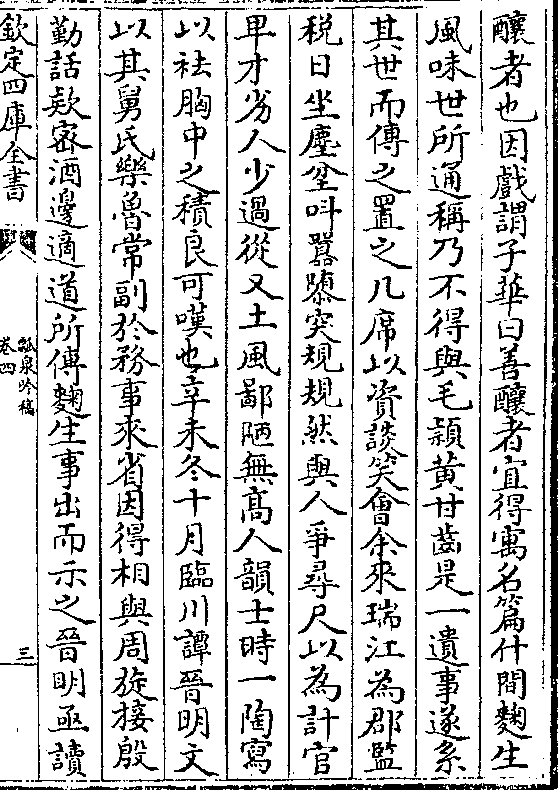 釀者也因戲謂子華曰善釀者宜得寓名篇什間麴生
風味世所通稱乃不得與毛穎黄甘齒是一遺事遂系
其世而傳之置之几席以資談笑會余來瑞江為郡監
税日坐塵坌叫囂隳突規規然與人爭尋尺以為計官
卑才劣人少過從又土風鄙陋無髙人韻士時一陶寫
以祛胸中之積良可嘆也辛未冬十月臨川譚晉明文
以其舅氏樂魯常副於務事來省因得相與周旋接殷
勤話欵密酒邊適道所傳麴生事出而示之晉明亟讀
欽定四庫全書
瓢泉吟稿
卷四
三